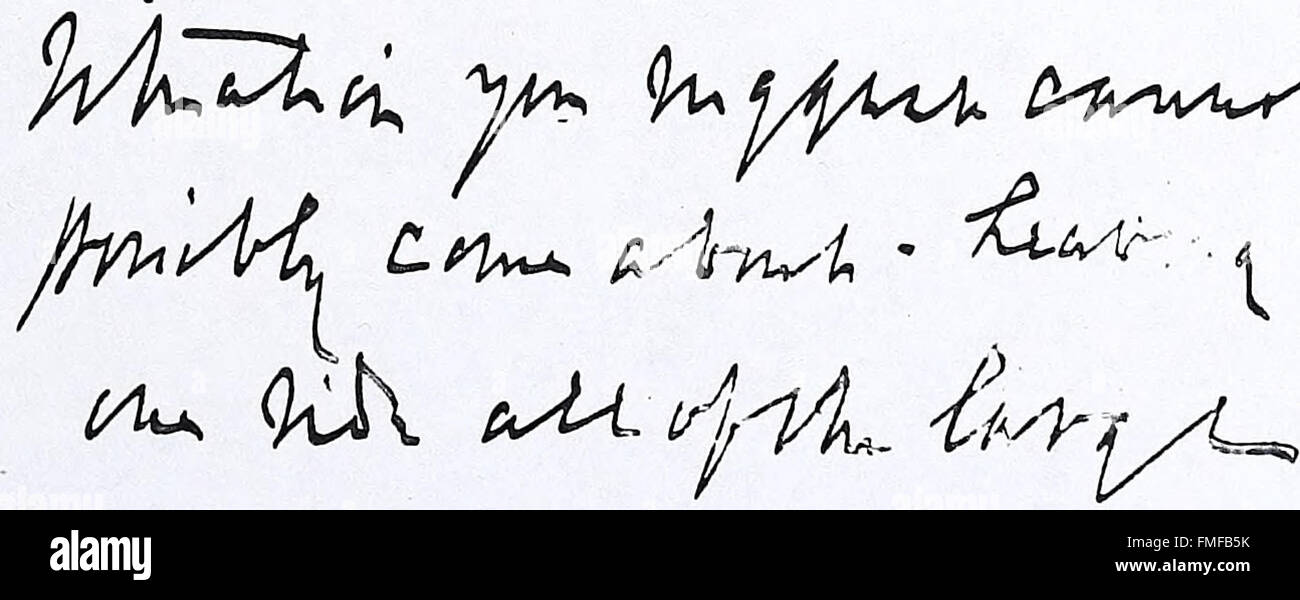 What in you suggest cannot
possibly come about. Leaving
one side all of the large
alamy
Image ID: FMFB5K
www.alamy.com